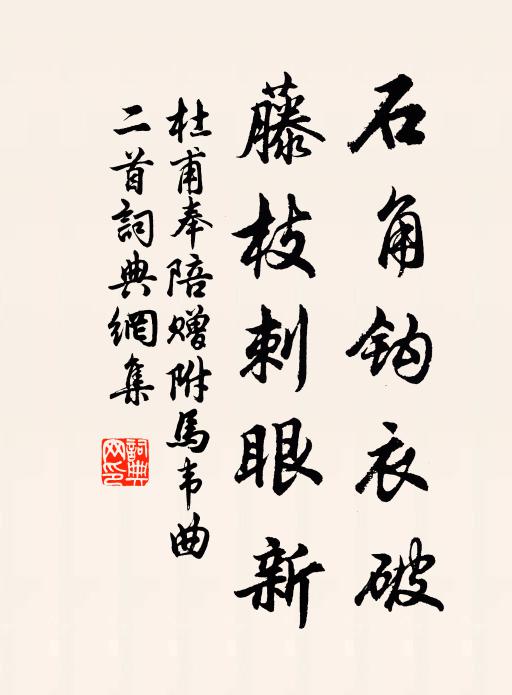 石角钩衣破
藤枝刺眼新
杜甫奉陪赠附馬韦曲
二首詞典網集
詞典
网印